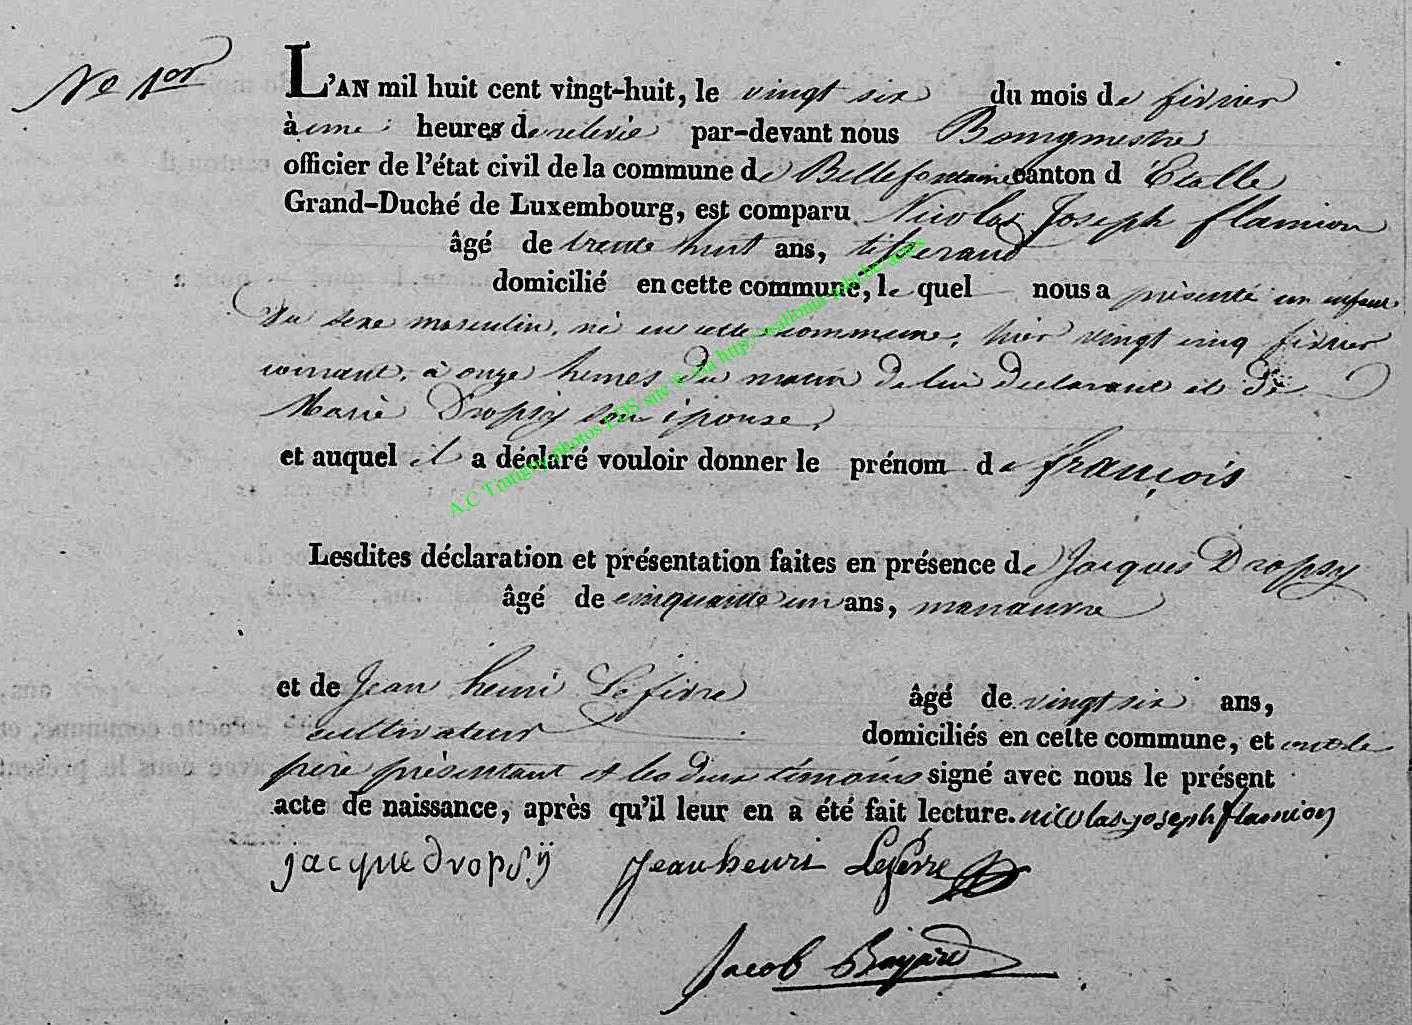 No 1er
L'AN mil huit cent vingt-huit, le vingt six du mois de fevrier
à une heures de relevée par-devant nous Bourgmestre
officier de l'état civil de la commune de Bellefontaine canton d'Etalle
Grand-Duché de Luxembourg, est comparu Nicolas Joseph flamion
âgé de trente huit ans, tisserand
domicilié en cette commune, le quel nous a présenté un enfant
du sexe masculin, né en cette commune, hier vingt cinq fevrier
courant, à onze heures du matin de lui declarant et de
Marie Dropsy son épouse,
et auquel il a déclaré vouloir donner le prénom de françois
Lesdites déclaration et présentation faites en présence de Jacques Dropsy
âgé de cinquante un ans, manœuvre
et de Jean henri Lefevre âgé de vingt six ans,
cultivateur domiciliés en cette commune, et ont le
père présentant et les deux témoins signé avec nous le présent
acte de naissance, après qu'il leur en a été fait lecture. nicolas joseph flamion
jacque dropsÿ Jean henri Lefevre
Jacob Bayard
A.C Tintigny photos EDS site & via http://wallonia-asbl.be/actes